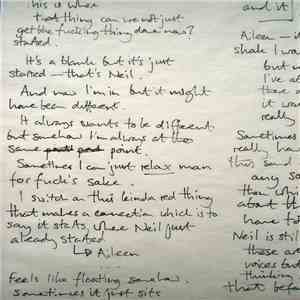 This is where
that thing can we not just
get the fucking thing done now?
started.
It's a blank but it's just
started – that's Neil.
And now I'm in but it might
have been different.
It always wants to be different
but somehow I'm always at the
same point.
Sometimes I can just relax man
for fuck's sake.
I switch on this kinda red thing
that makes a connection which is to
say it starts, where Neil just
already started
↳ Aileen
feels like floating somehow.
sometimes it just sits
and it
Aileen – i
shale I wa
but n
I've a
there a
it wa
really
Sometimes
really ha
this sand
any so
than wh
about it
have fa
Neil is still
these are
voices but
thinking
that befo